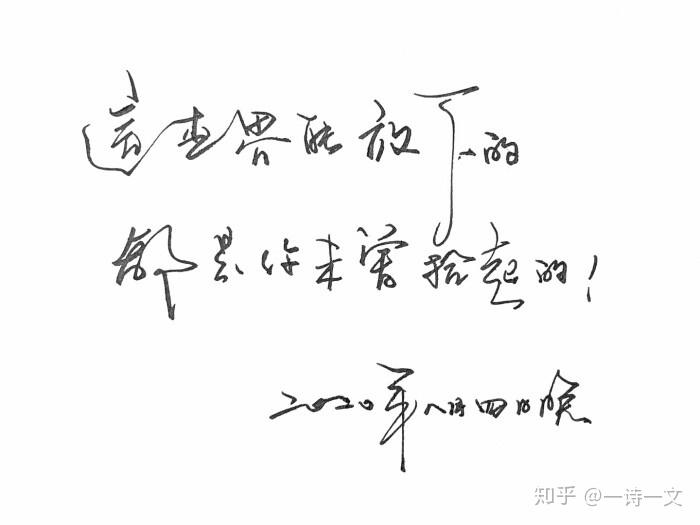 這世界能放下的
都是你未曾拾起的！
二〇二〇年八月四日晚
知乎 @一诗一文